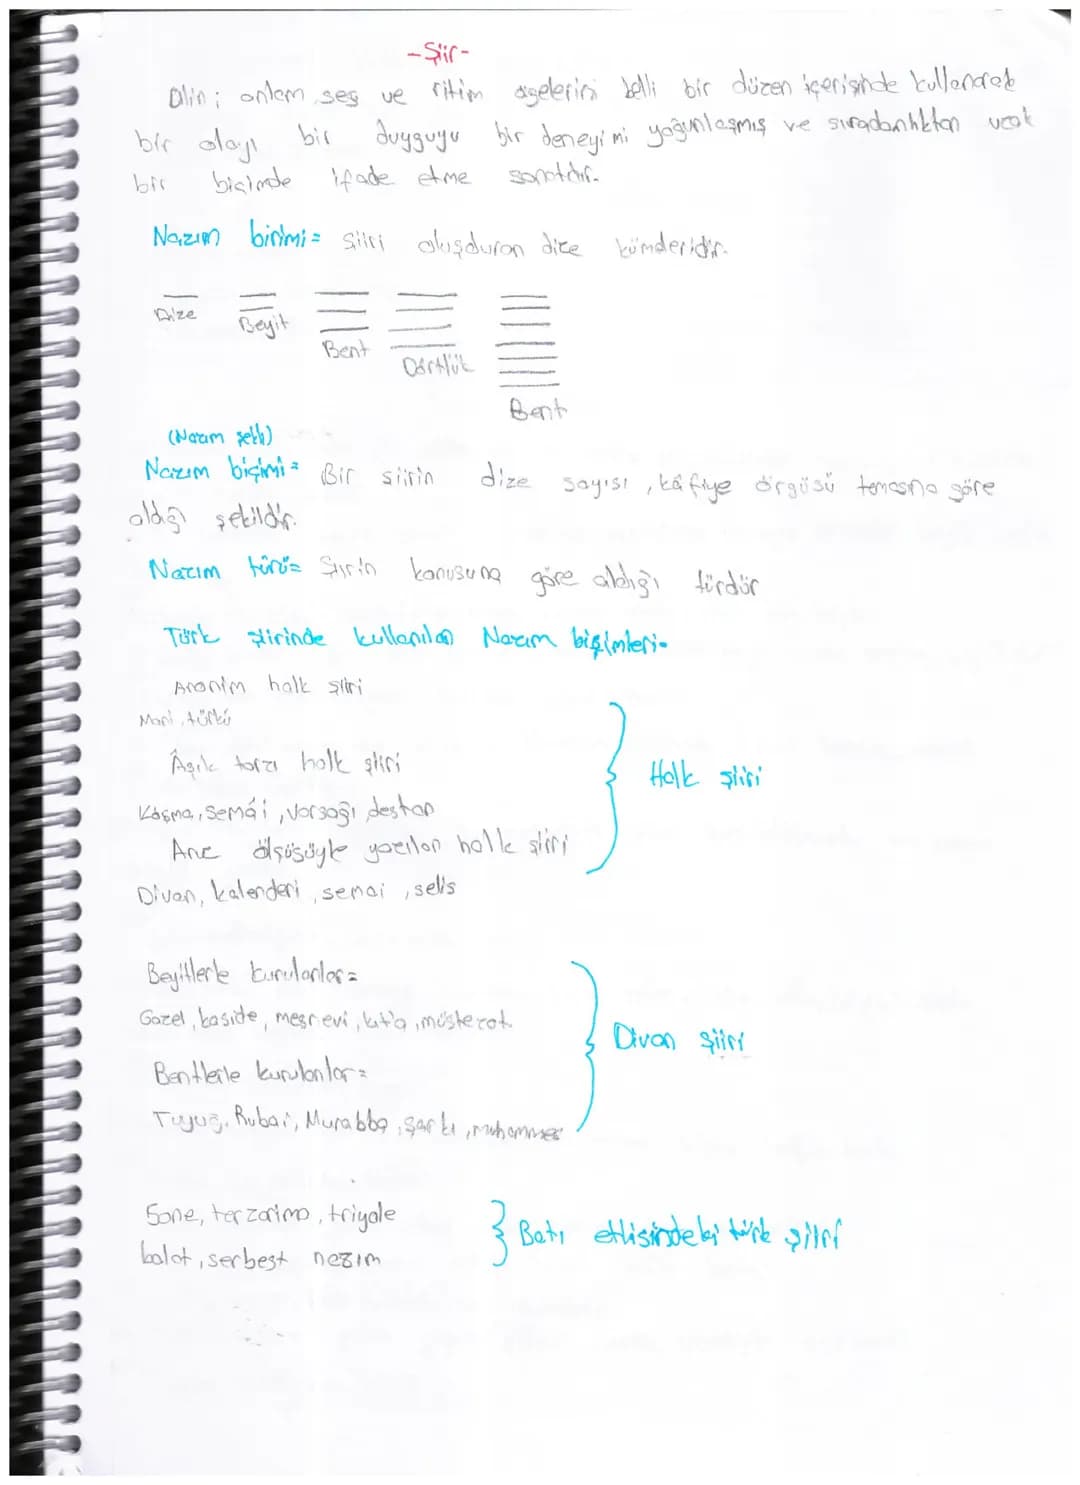 -Şiir-
Dilin; anlam ses ve ritim ögelerini belli bir düzen içerisinde kullanarak
bir olayı bir duyguyu bir deneyimi yoğunlaşmış ve sıradanlıktan uzak
bir biçimde ifade etme sanatıdır.
Nazım birimi= Şiiri oluşduran dize kümderidir.
Dize Beyit Bent Dörtlük
Bent
(Nazım şekli)
Nazım biçimi= Bir şiirin dize sayısı, kâfiye örgüsü temasına göre
aldığı şekildir.
Nazım türü= Şiirin konusuna göre aldığı türdür
Türk şiirinde kullanılan Nazım biçimleri-
Anonim halk şiiri
Mani, türkü
Âşık tarzı halk şiiri
Koşma, Semâi, Varsağı destan
Halk şiiri
Aruz ölçüsüyle yazılan halk şiiri
Divan, kalenderi, semai, selis
Beyitlerle kurulanlar=
Gazel, kaside, mesnevi, kıt'a, müstezat
Divan şiiri
Bentlerle kurulanlar=
Tuyuğ, Rubai, Murabba, şarkı, muhammes
Sone, terzarima, triyole
balat, serbest nazım
Batı etkisindeki türk şiiri